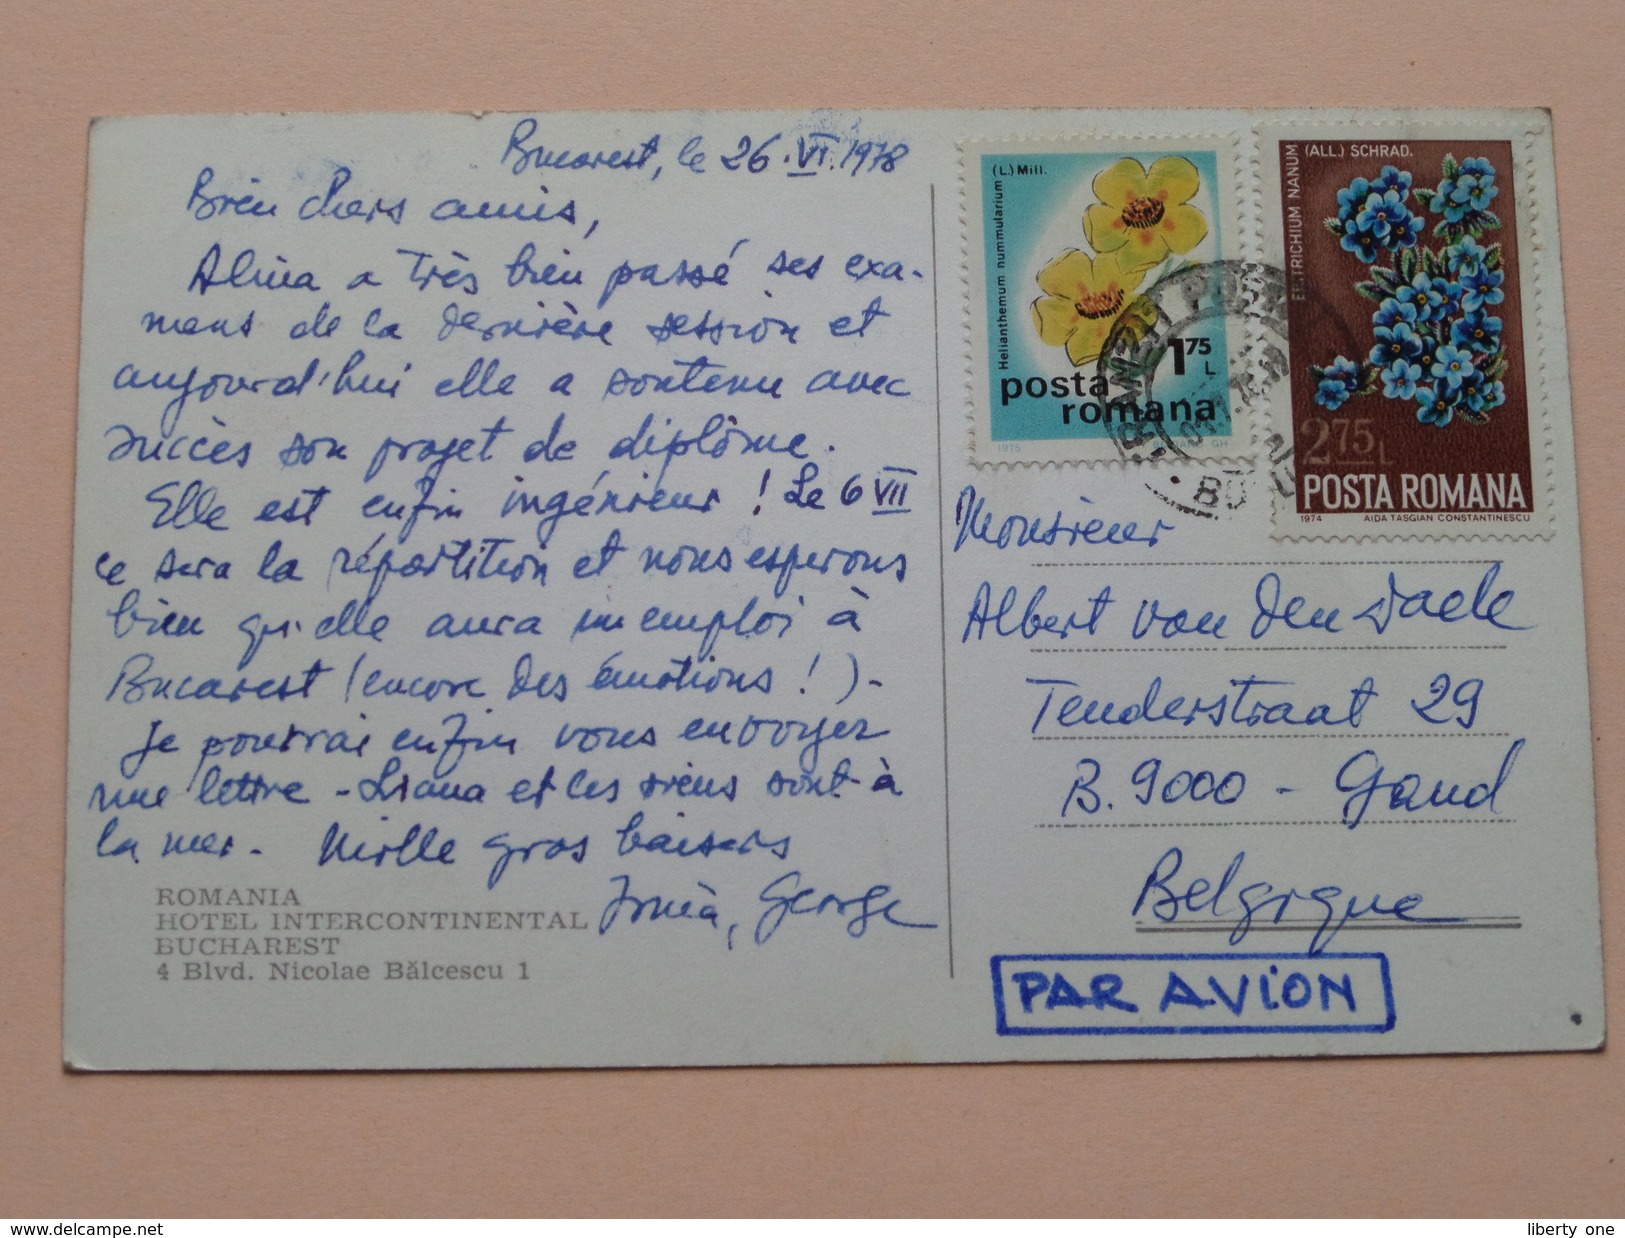 Bucarest, le 26.VI.1978
Bien chers amis,
Alina a très bien passé ses exa-
mens de la dernière session et
aujourd'hui elle a soutenu avec
succès son projet de diplôme.
Elle est enfin ingénieur ! Le 6 VII
ce sera la répartition et nous esperons
bien qu'elle aura un emploi à
Bucarest (encore des émotions !) -
Je pourrai enfin vous envoyer
une lettre - Liana et les siens sont à
la mer. Mille gros baisers
George
ROMANIA
HOTEL INTERCONTINENTAL
BUCHAREST
4 Blvd. Nicolae Bălcescu 1
(L.) Mill.
Helianthemum nummularium
1 75 L
posta
romana
1975
ERITRICHIUM NANUM
(ALL.) SCHRAD.
2 75 L
POSTA ROMANA
1974 AIDA TASGIAN CONSTANTINESCU
Monsieur
Albert van den Daele
Tenderstraat 29
B. 9000 - Gand
Belgique
PAR AVION
http://www.delcampe.net
liberty one